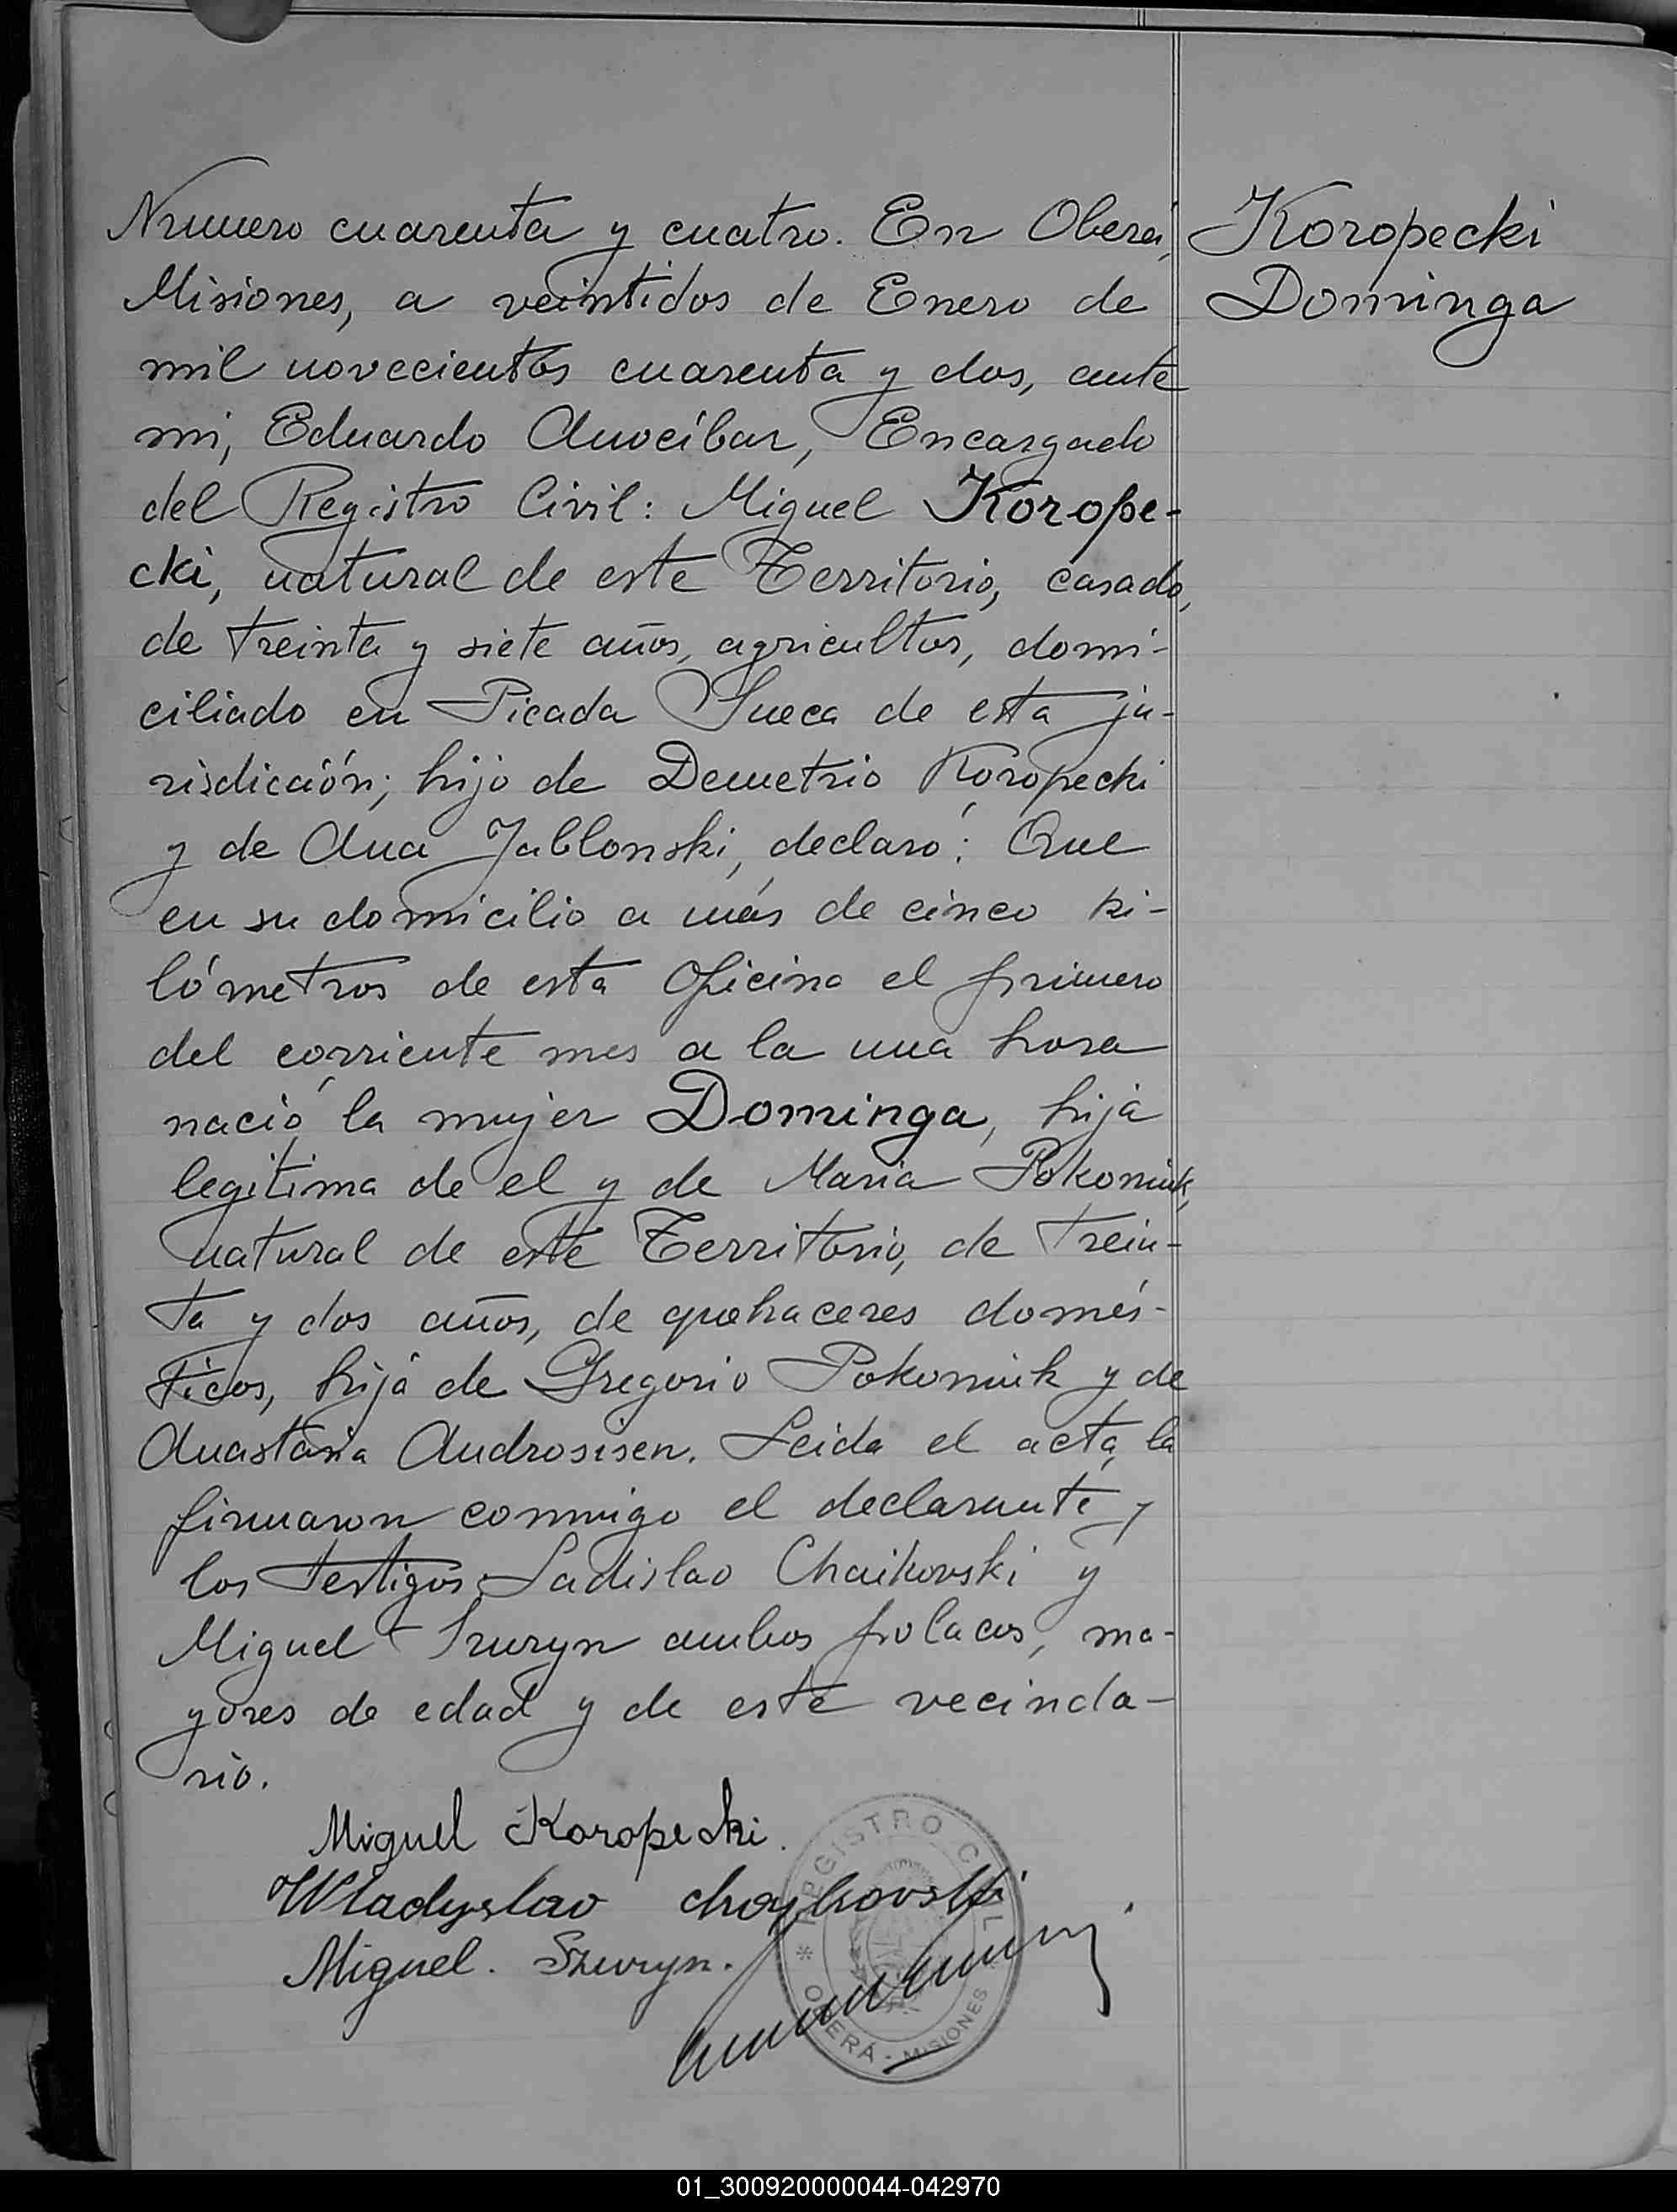 Numero cuarenta y cuatro. En Oberá,
Misiones, a veintidos de Enero de
mil novecientos cuarenta y dos, ante
mi, Eduardo Anocíbar, Encargado
del Registro Civil: Miguel Korope-
cki, natural de este Territorio, casado,
de treinta y siete años, agricultor, domi-
ciliado en Picada Sueca de esta ju-
risdicción; hijo de Demetrio Koropecki
y de Ana Jablonski, declaró: Que
en su domicilio a más de cinco ki-
lómetros de esta Oficina el primero
del corriente mes a la una hora
nació la mujer Dominga, hija
legitima de el y de Maria Pokomiuk,
natural de este Territorio, de trein-
ta y dos años, de quehaceres domés-
ticos, hija de Gregorio Pokomiuk y de
Anastasia Androsisen. Leida el acta, la
firmaron conmigo el declarante y
los testigos Ladislao Chaikovski y
Miguel Szuryn ambos polacos, ma-
yores de edad y de este vecinda-
rio.
Koropecki
Dominga
Miguel Koropecki.
Wladyslav Chaykovski
Miguel. Szuryn.
REGISTRO CIVIL
* OBERÁ - MISIONES
01_300920000044-042970